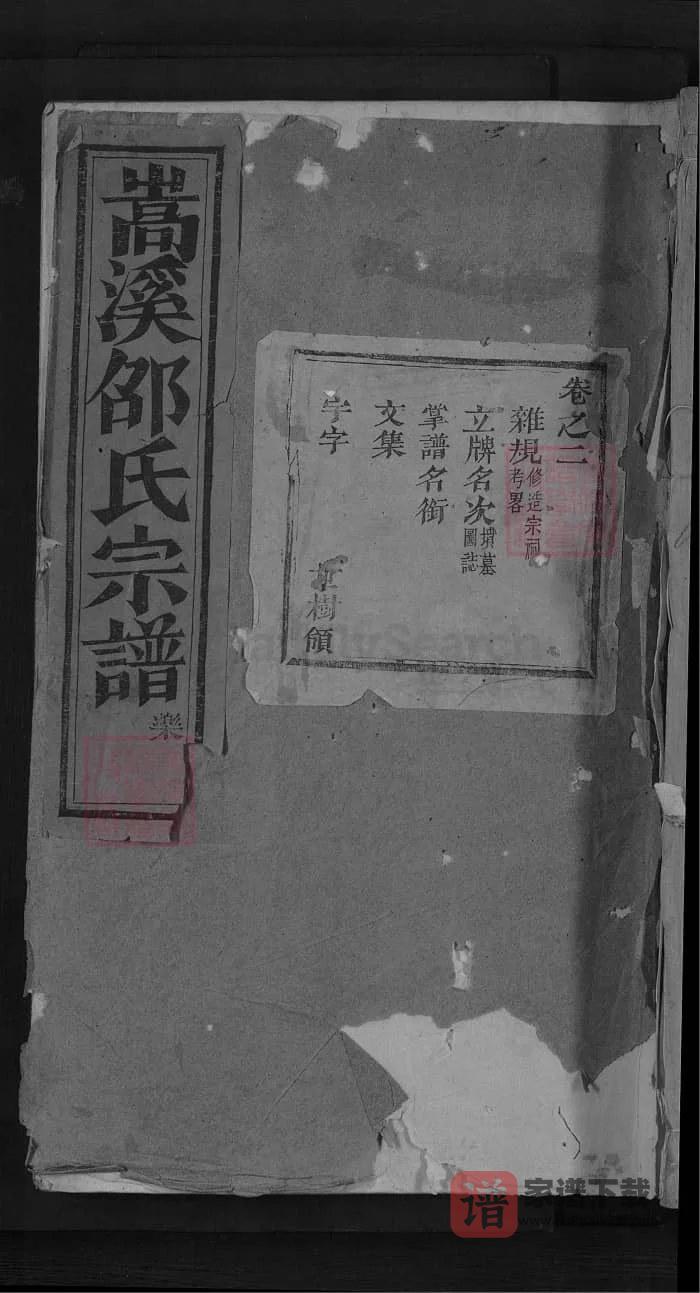 嵩溪邵氏宗譜
樂
卷之二
雜規修造宗祠考畧
立牌名次墳墓圖誌
掌譜名銜
文集
字
樹領
FamilySearch
谱 家谱下载